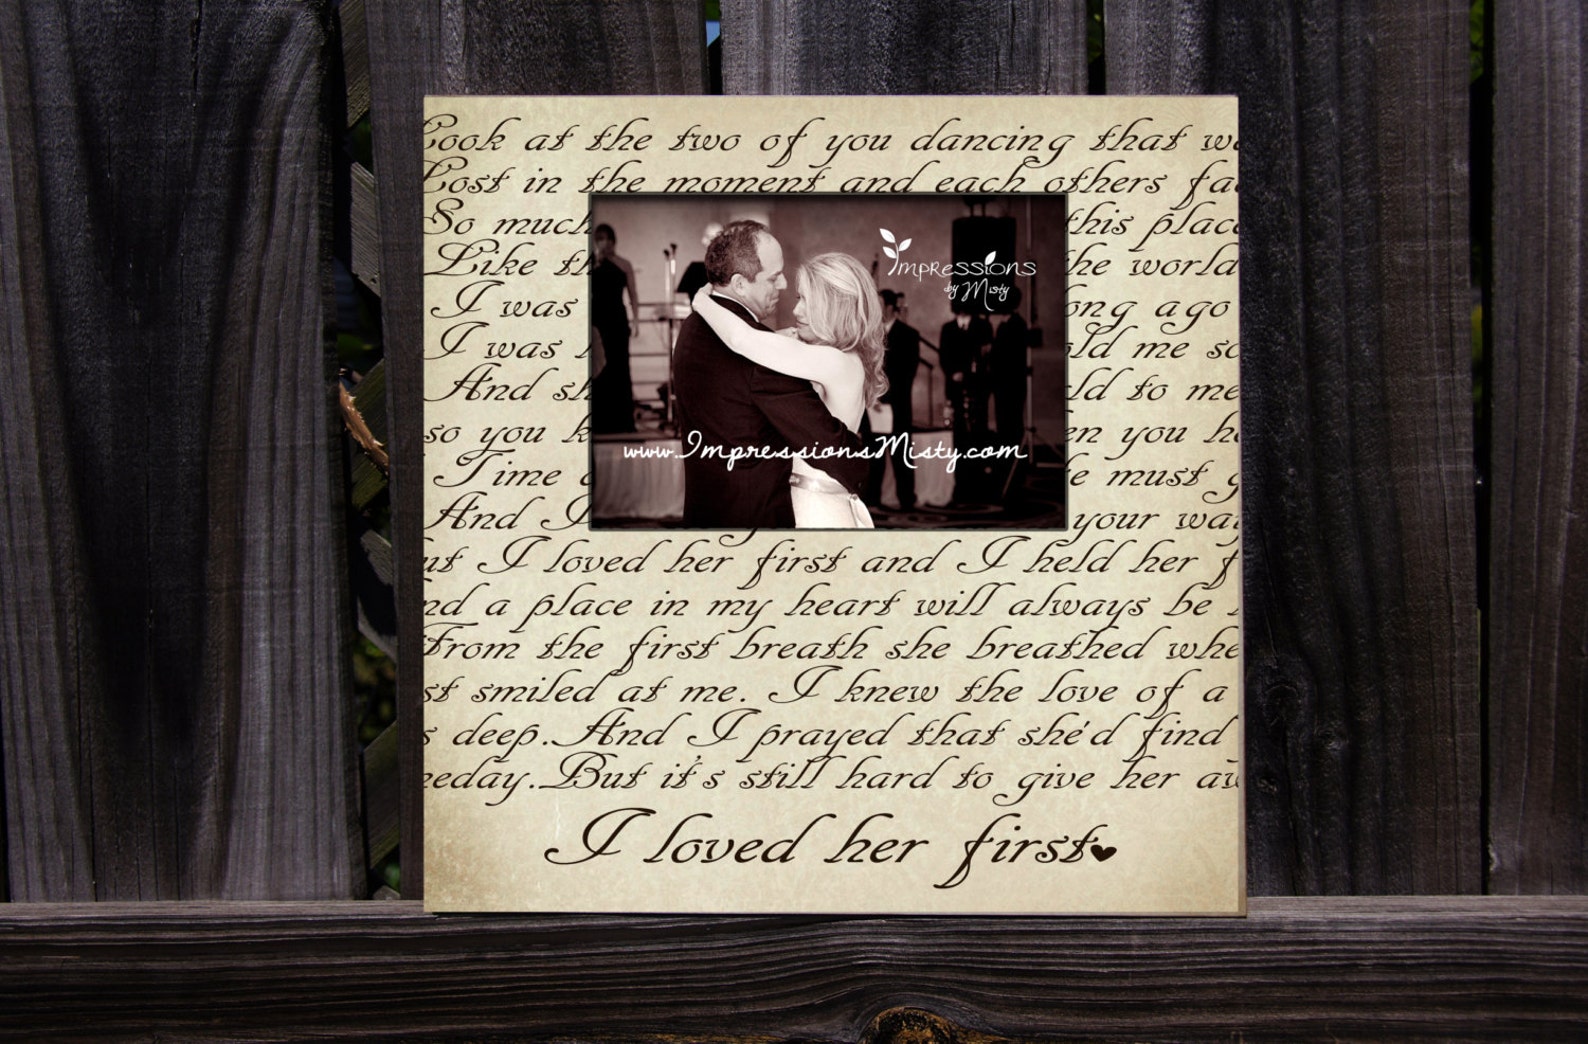 Look at the two of you dancing that w
Lost in the moment and each others fa
So much this plac
Like th he world
I was ong ago
I was old me so
And sh ld to me
so you k en you h
Time must g
And I your wa
ut I loved her first and I held her f
nd a place in my heart will always be
From the first breath she breathed whe
st smiled at me. I knew the love of a
s deep. And I prayed that she'd find
meday. But it's still hard to give her aw
I loved her first
Impressions
by Misty
www.ImpressionsMisty.com